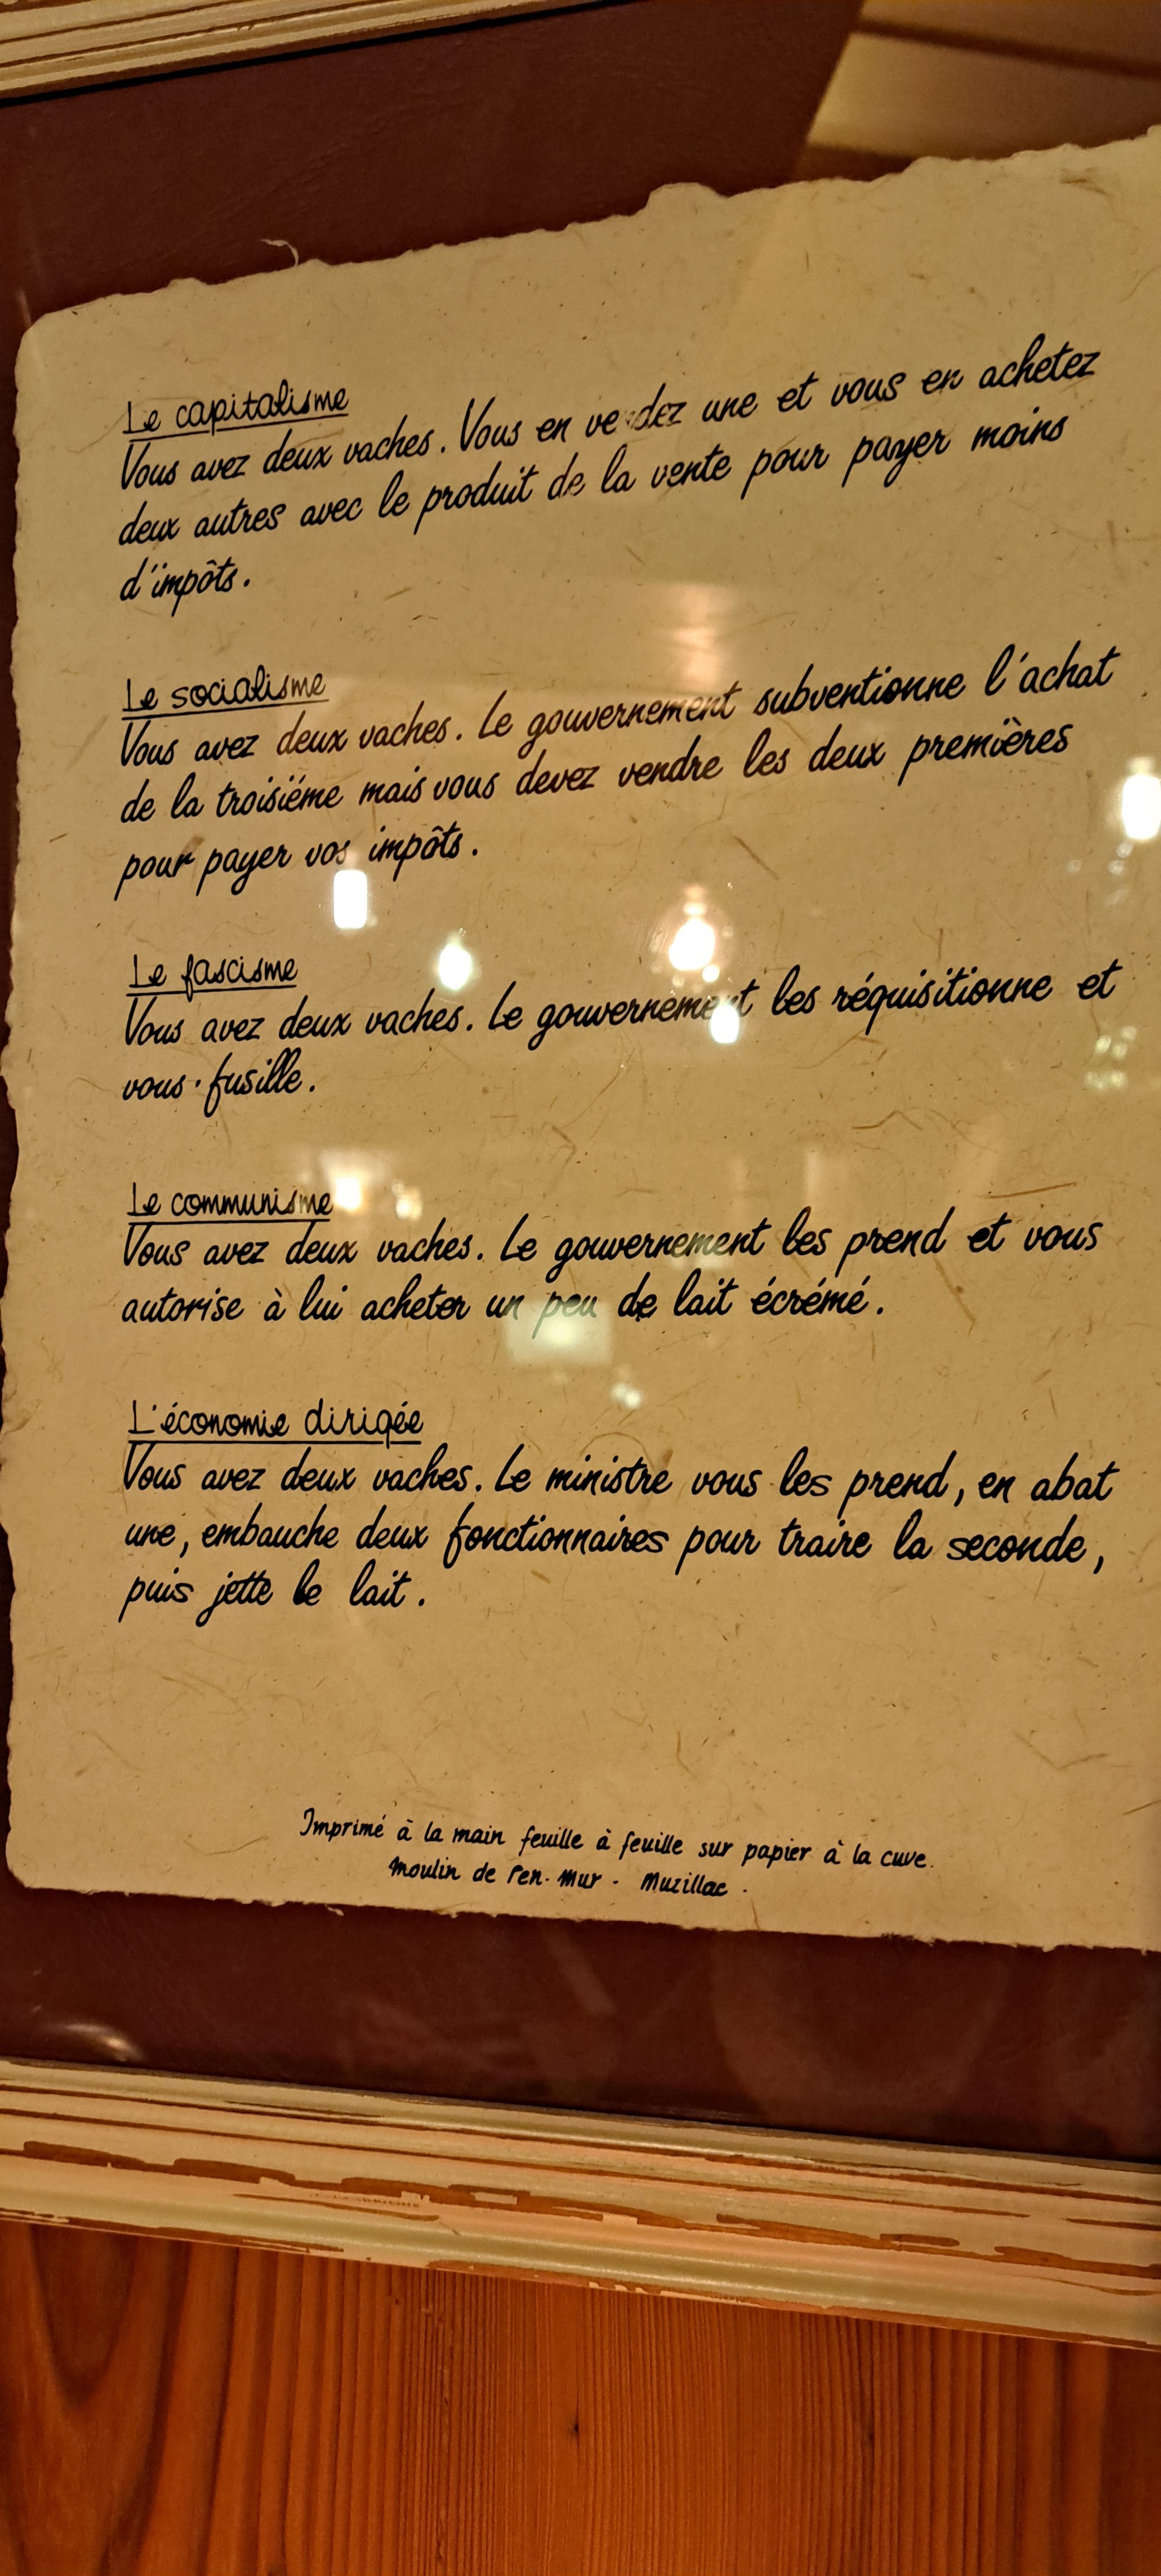 Le capitalisme
Vous avez deux vaches. Vous en vendez une et vous en achetez
deux autres avec le produit de la vente pour payer moins
d'impôts.
Le socialisme
Vous avez deux vaches. Le gouvernement subventionne l'achat
de la troisième mais vous devez vendre les deux premières
pour payer vos impôts.
Le fascisme
Vous avez deux vaches. Le gouvernement les réquisitionne et
vous fusille.
Le communisme
Vous avez deux vaches. Le gouvernement les prend et vous
autorise à lui acheter un peu de lait écrémé.
L'économie dirigée
Vous avez deux vaches. Le ministre vous les prend, en abat
une, embauche deux fonctionnaires pour traire la seconde,
puis jette le lait.
Imprimé à la main feuille à feuille sur papier à la cuve.
Moulin de Pen-Mur - Muzillac.